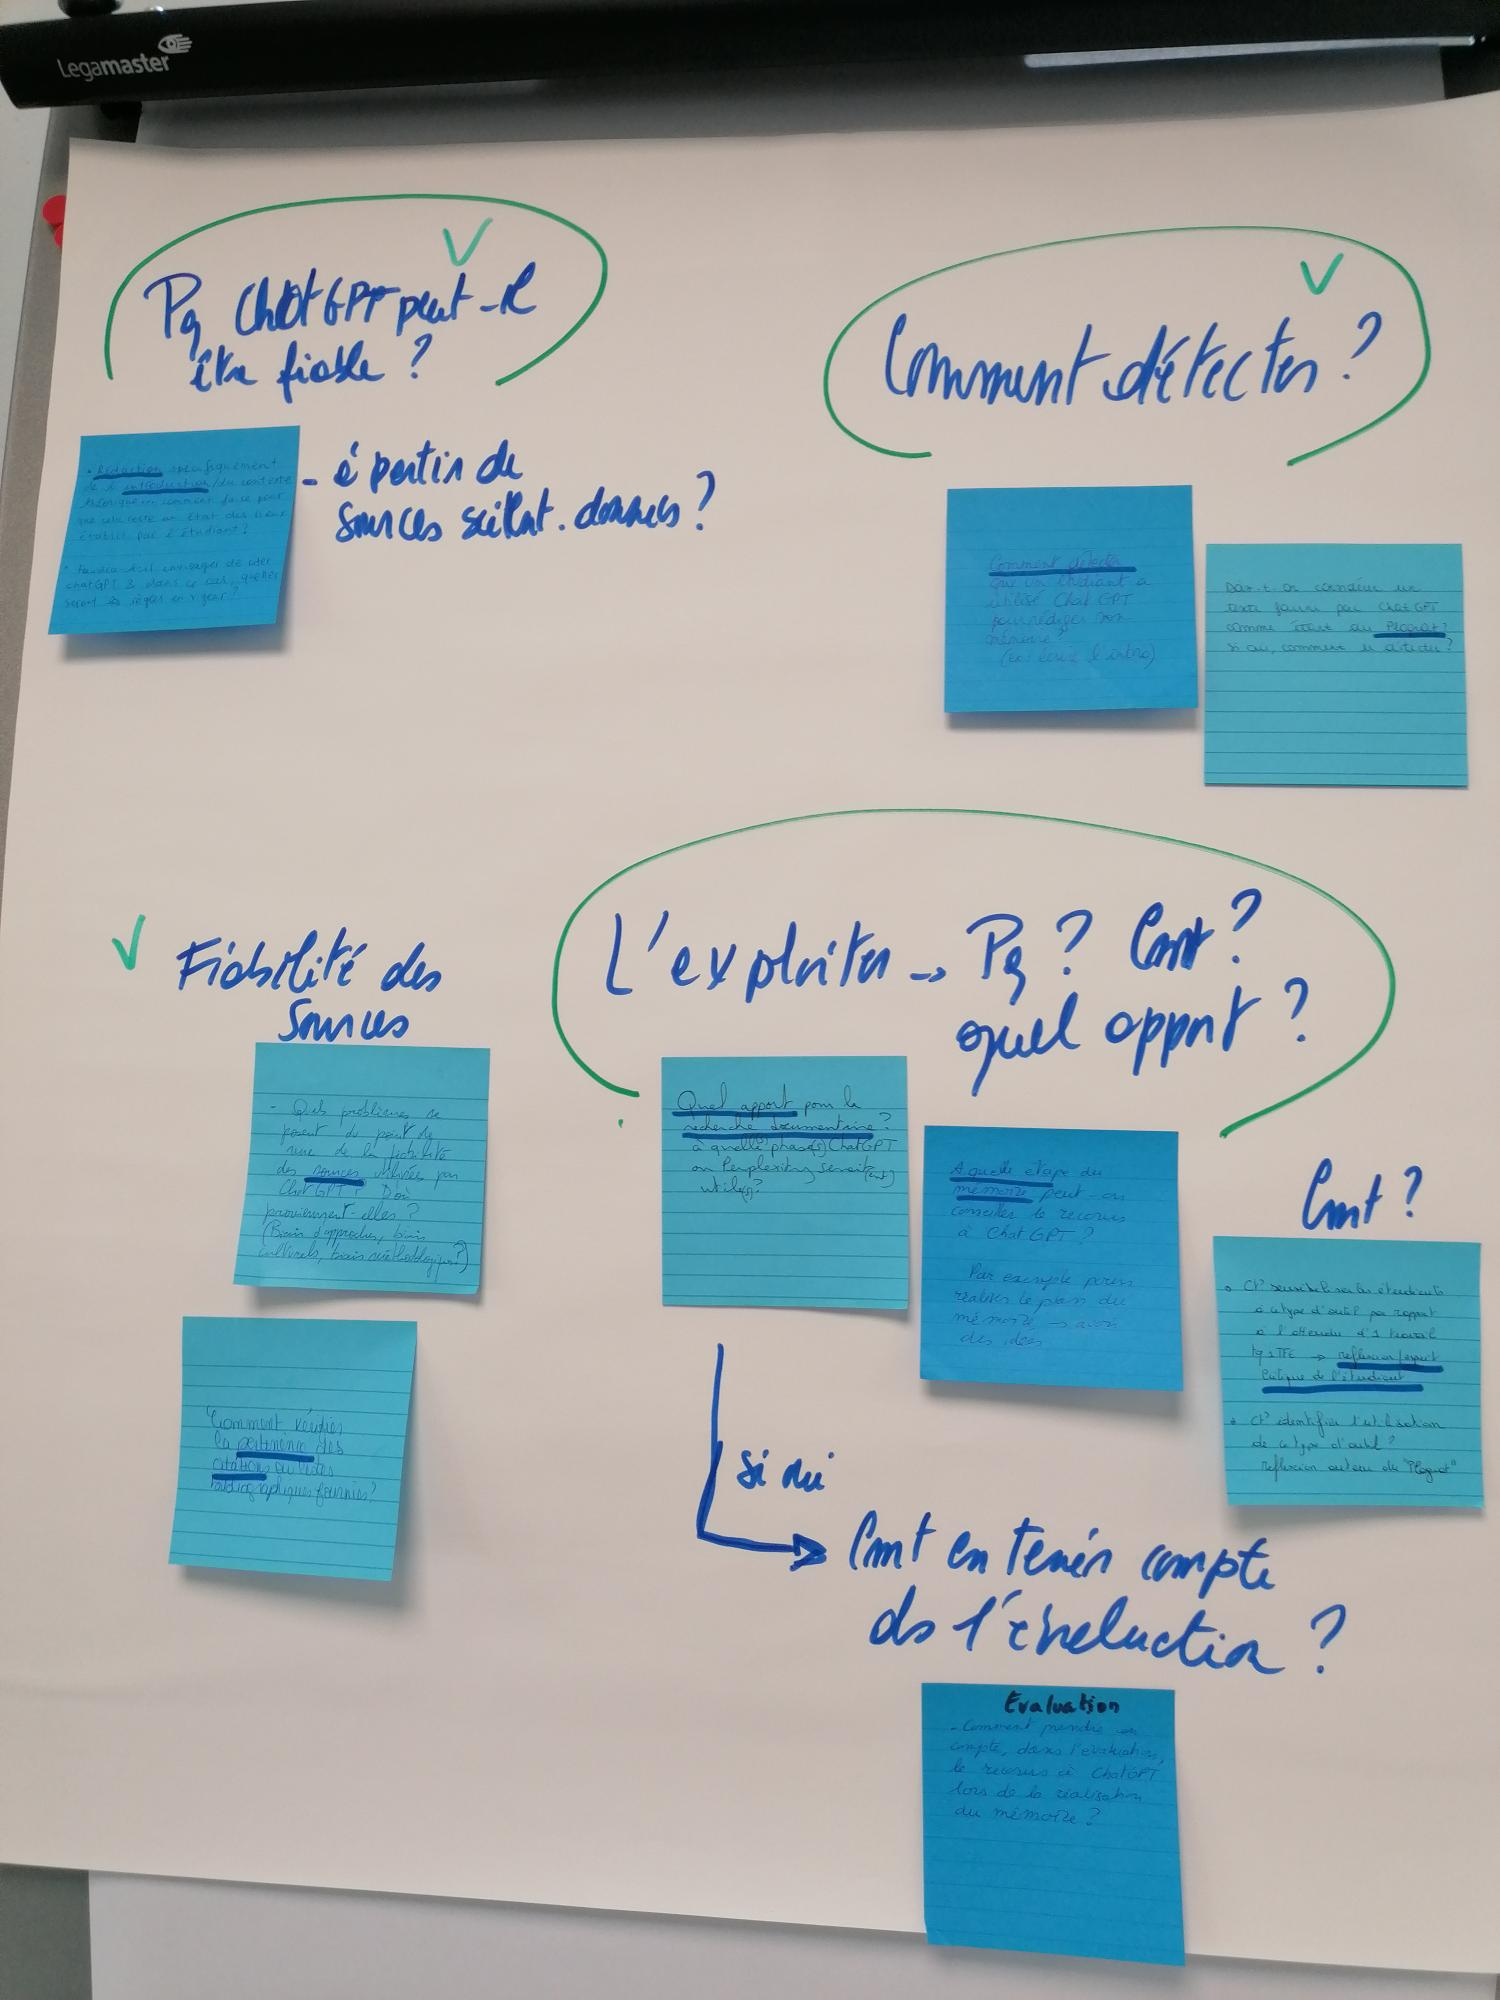 Legamaster
Pq ChatGPT peut-il
être fiable ?
- Rédaction spécifiquement
de l'introduction/du contexte
théorique : comment faire pour
que cela reste un état des lieux
établi par l'étudiant ?
chatGPT & dans ce cas, quelles
seront les règles en vigueur ?
- à partir de
sources scient. données ?
Comment détecter ?
Comment détecter
que un étudiant a
utilisé Chat GPT
pour rédiger son
mémoire ?
(ex: écrire l'intro)
Doit-on considérer un
texte fourni par Chat GPT
comme étant du Plagiat ?
si oui, comment le détecter ?
Fiabilité des
Sources
- Quels problèmes se
posent du point de
vue de la fiabilité
des sources utilisées par
ChatGPT ? D'où
proviennent-elles ?
(Biais d'approches, biais
culturels, biais méthodologiques ?)
Comment vérifier
la pertinence des
citations ou listes
bibliographiques fournies ?
L'exploiter → Pq ? Cmt ?
quel apport ?
Quel apport pour la
recherche documentaire ?
à quelle(s) phase(s) ChatGPT
ou Perplexity serai(en)t
utile(s) ?
A quelle étape du
mémoire peut-on
conseiller le recours
à Chat GPT ?
Par exemple pour
réaliser le plan du
mémoire → avoir
des idées
Cmt ?
• Ct sensibiliser les étudiants
à ce type d'outil par rapport
à l'attendu d'1 travail
tq 1 TFE → reflexion/esprit
critique de l'étudiant
• Ct identifier l'utilisation
de ce type d'outil ?
reflexion autour du "Plagiat"
si oui
Cmt en tenir compte
ds l'évaluation ?
Evaluation
- Comment prendre en
compte, dans l'évaluation,
le recours à ChatGPT
lors de la réalisation
du mémoire ?